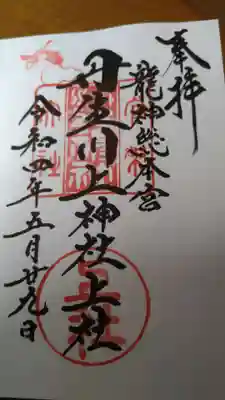 奉拝
龍神総本宮
丹生川上神社上社
令和四年五月廿九日